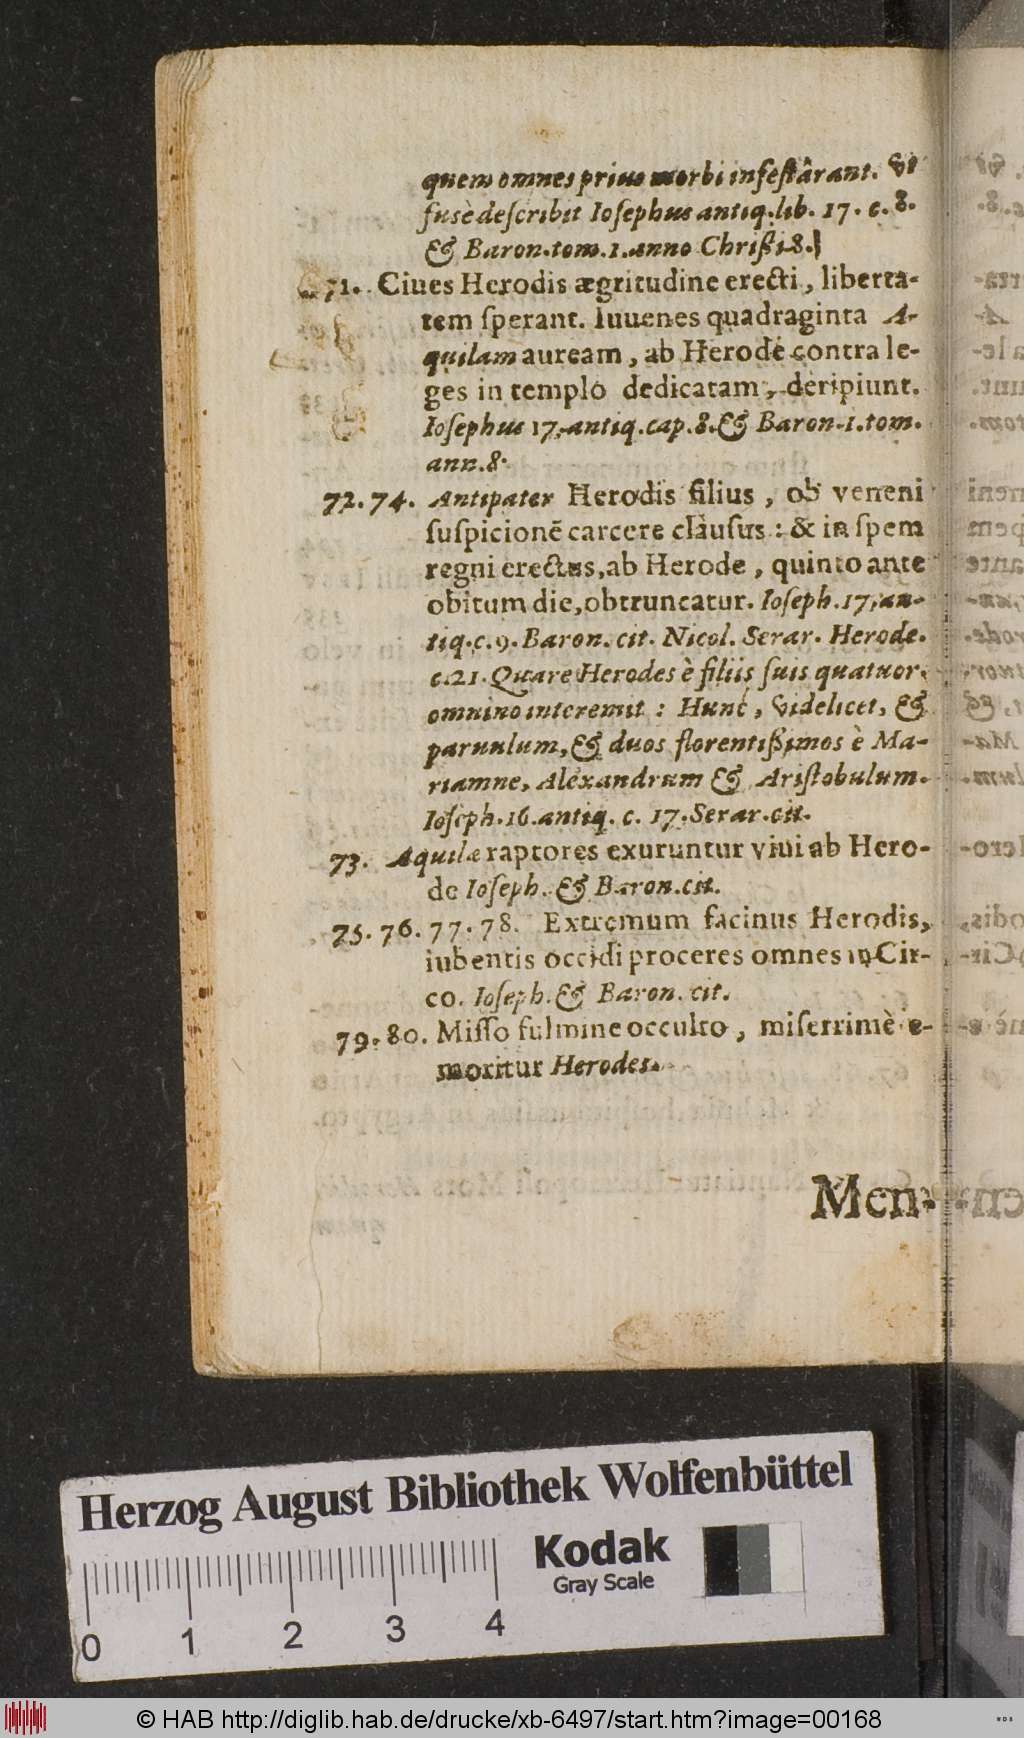 quem omnes prius morbi infestârant. Vt
fusè describit Iosephus antiq. lib. 17. c. 8.
& Baron. tom. 1. anno Christi 8.
71. Ciues Herodis ægritudine erecti, liberta-
tem sperant. Iuuenes quadraginta A-
quilam auream, ab Herode contra le-
ges in templo dedicatam, deripiunt.
Iosephus 17. antiq. cap. 8. & Baron. 1. tom.
ann. 8.
72. 74. Antipater Herodis filius, ob veneni
suspicionẽ carcere clausus: & in spem
regni erectus, ab Herode, quinto ante
obitum die, obtruncatur. Ioseph. 17. an-
tiq. c. 9. Baron. cit. Nicol. Serar. Herode.
c. 21. Quare Herodes è filiis suis quatuor
omnino interemit: Hunc, videlicet, &
paruulum, & duos florentißimos è Ma-
riamne, Alexandrum & Aristobulum.
Ioseph. 16. antiq. c. 17. Serar. cit.
73. Aquilæ raptores exuruntur viui ab Hero-
de Ioseph. & Baron. cit.
75. 76. 77. 78. Extremum facinus Herodis,
iubentis occidi proceres omnes in Cir-
co. Ioseph. & Baron. cit.
79. 80. Misso fulmine occulto, miserrimè e-
moritur Herodes.
Men-
Herzog August Bibliothek Wolfenbüttel
Kodak
Gray Scale
0 1 2 3 4
© HAB http://diglib.hab.de/drucke/xb-6497/start.htm?image=00168